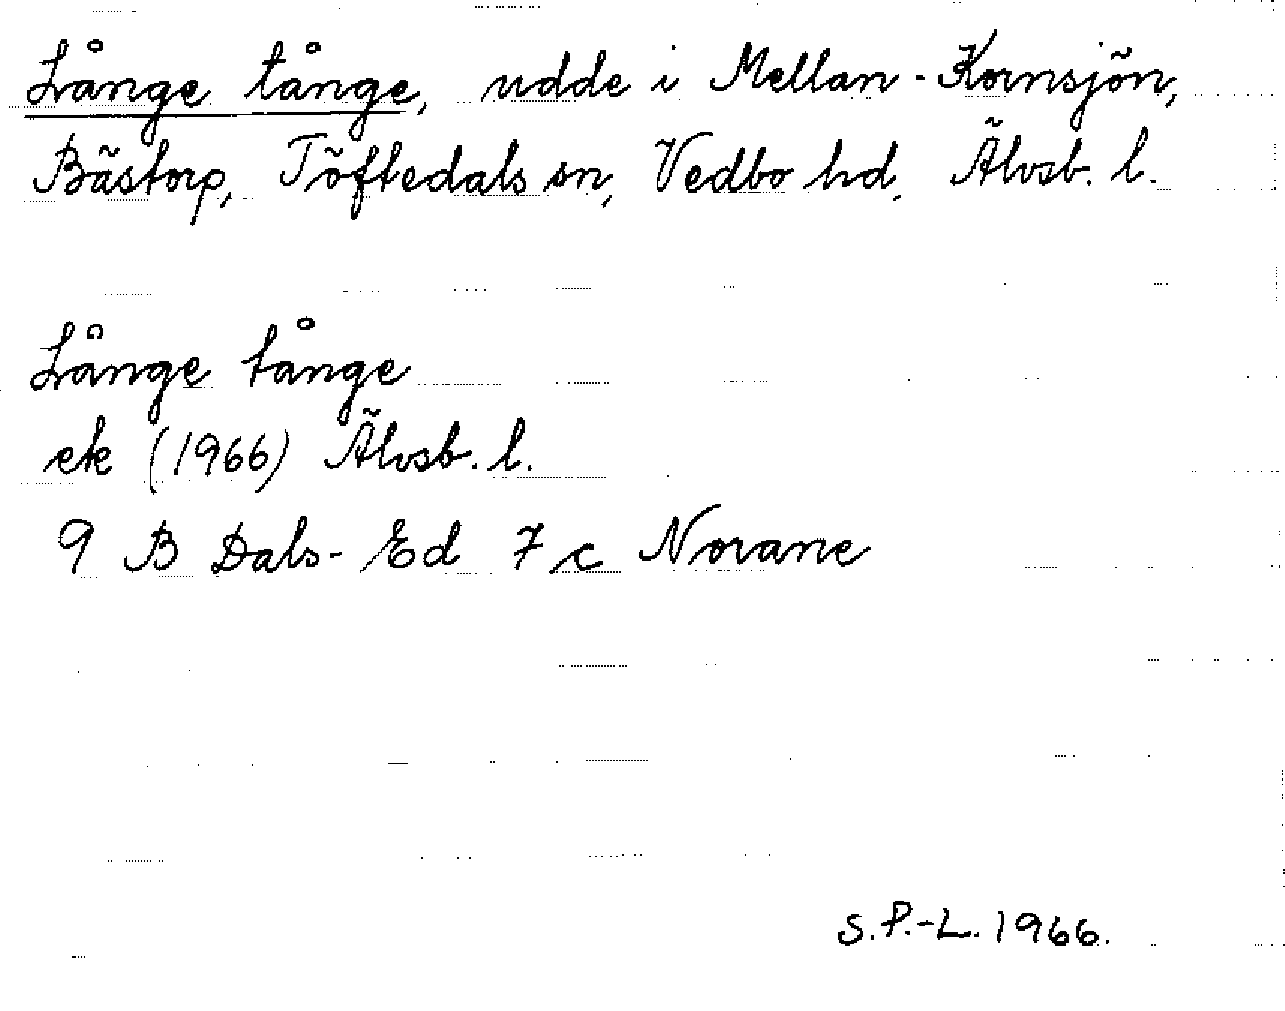 Långe tånge, udde i Mellan-Kornsjön,
Bästorp, Töftedals sn, Vedbo hd, Älvsb. l.
Långe tånge
ek (1966) Älvsb. l.
9 B Dals-Ed 7 c Norane
S.P.-L. 1966.